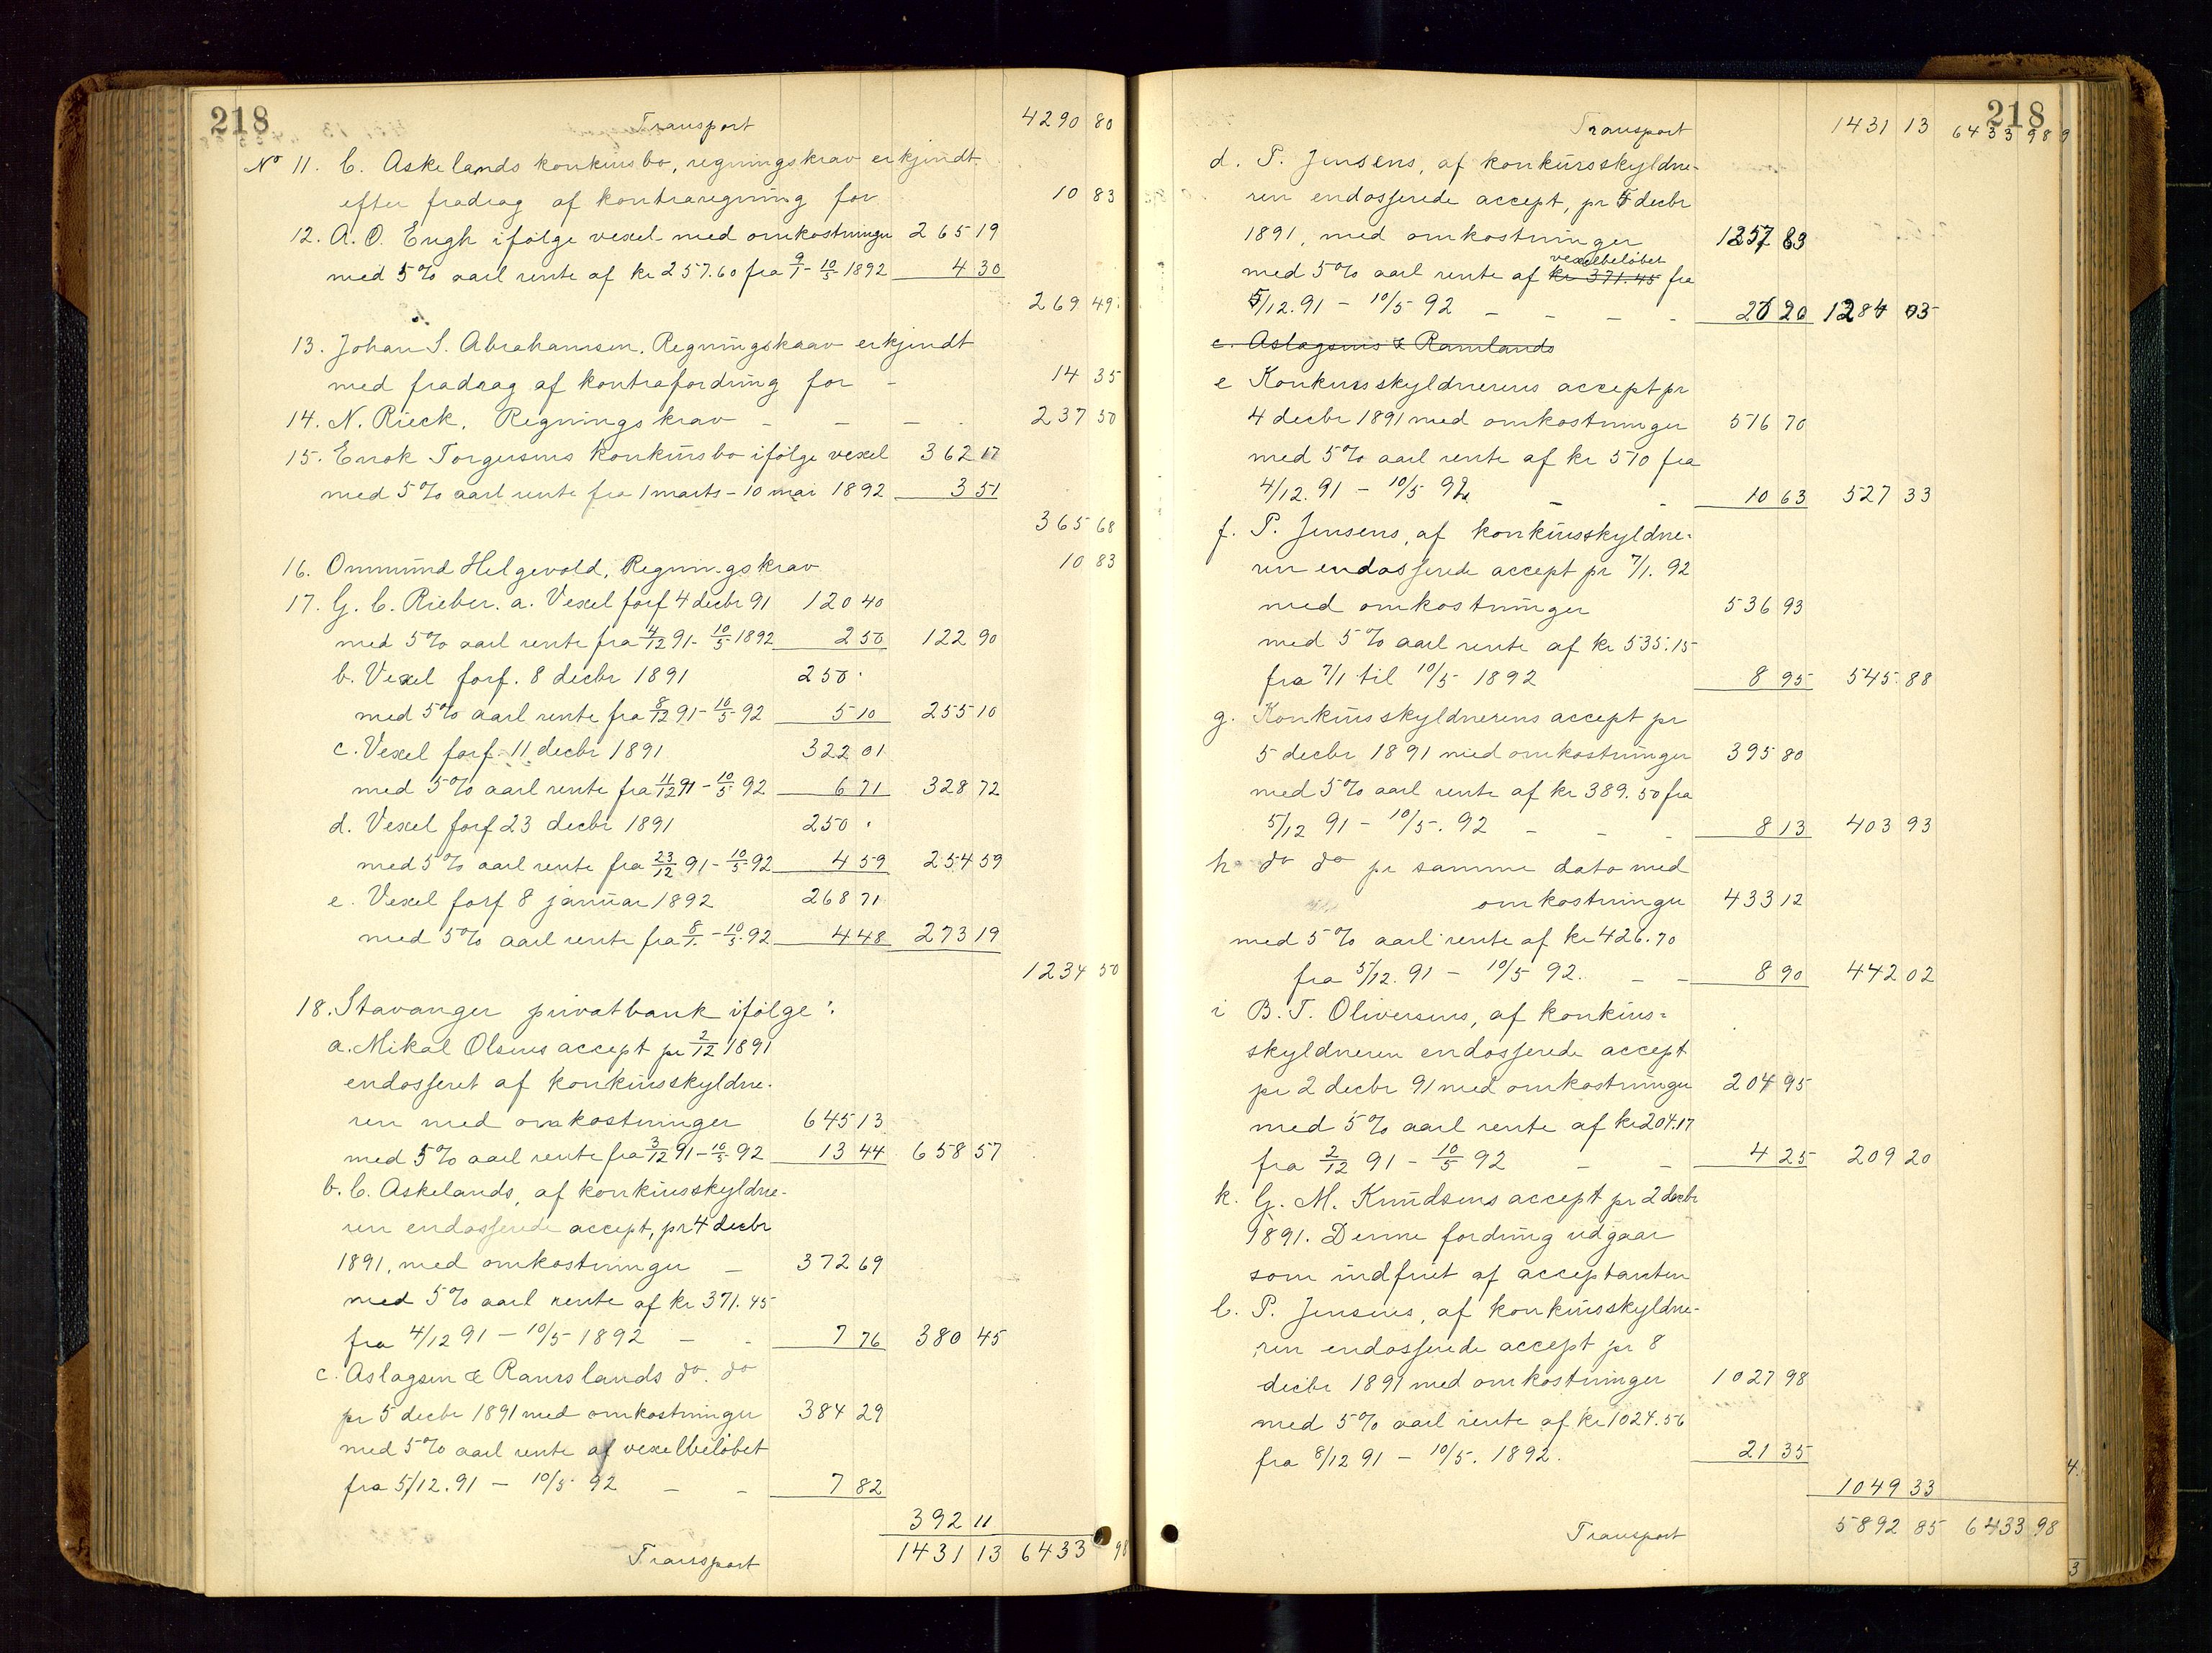 218
Transport 4290 80
No 11. C. Askelands konkursbo, regningskrav erkjendt
efter fradrag af kontraregning for 10 83
12. A. O. Engh ifølge vexel med omkostninger 265 19
med 5% aarl rente af kr 257.60 fra 9/1 - 10/5 1892 4 30
269 49
13. Johan S. Abrahamsen. Regningskrav erkjendt
med fradrag af kontrafordring for - 14 35
14. N. Rieck. Regningskrav - - - - 237 50
15. Enok Torgersens konkursbo ifølge vexel 362 17
med 5% aarl rente fra 1 marts - 10 mai 1892 3 51
365 68
16. Ommund Helgevold, Regningskrav 10 83
17. G. C. Rieber. a. Vexel forf 4 decbr 91 120 40
med 5% aarl rente fra 4/12 91 - 10/5 1892 2 50 122 90
b. Vexel forf. 8 decbr 1891 250 .
med 5% aarl rente fra 8/12 91 - 10/5 92 5 10 255 10
c. Vexel forf 11 decbr 1891 322 01
med 5% aarl rente fra 11/12 91 - 10/5 92 6 71 328 72
d. Vexel forf 23 decbr 1891 250 .
med 5% aarl rente fra 23/12 91 - 10/5 92 4 59 254 59
e. Vexel forf 8 januar 1892 268 71
med 5% aarl rente fra 8/1 - 10/5 92 4 48 273 19
1234 50
18. Stavanger privatbank ifølge:
a. Mikal Olsens accept pr 2/12 1891
endosseret af konkursskyldne-
ren med omkostninger 645 13
med 5% aarl rente fra 3/12 91 - 10/5 92 13 44 658 57
b. C. Askelands, af konkursskyldne-
ren endosserede accept, pr 4 decbr
1891, med omkostninger - 372 69
med 5% aarl rente af kr 371.45
fra 4/12 91 - 10/5 1892 - - 7 76 380 45
c. Aslagsen & Ramslands do. do
pr 5 decbr 1891 med omkostninger 384 29
med 5% aarl rente af vexelbeløbet
fra 5/12. 91 - 10/5 92 - - 7 82
392 11
Transport 1431 13 6433 98
218
Transport 1431 13 6433 98
d. P. Jensens, af konkursskyldne-
ren endosserede accept, pr 5 decbr
1891, med omkostninger 1257 83
vexelbeløbet
med 5% aarl rente af kr 371.45 fra
5/12. 91 - 10/5 92 - - - - 26 20 1284 03
e. Aslagsens & Ramlands
e Konkursskyldnerens accept pr
4 decbr 1891 med omkostninger 516 70
med 5% aarl rente af kr 510 fra
4/12. 91 - 10/5 92. - - 10 63 527 33
f. P. Jensens, af konkursskyldne-
ren endosserede accept pr 7/1. 92
med omkostninger 536 93
med 5% aarl rente af kr 535.15
fra 7/1 til 10/5 1892 8 95 545 88
g. Konkursskyldnerens accept pr
5 decbr 1891 med omkostninger 395 80
med 5% aarl rente af kr 389.50 fra
5/12 91 - 10/5. 92 - - - 8 13 403 93
h do do pr samme dato med
omkostninger 433 12
med 5% aarl rente af kr 426.70
fra 5/12. 91 - 10/5 92. - - 8 90 442 02
i B. T. Oliversens, af konkurs=
skyldneren endosserede accept
pr 2 decbr 91 med omkostninger 204 95
med 5% aarl rente af kr 204.17
fra 2/12 91 - 10/5 92 - - 4 25 209 20
k. G. M. Knudsens accept pr 2 decbr
1891. Denne fordring udgaar
som indfriet af acceptanten
l. P. Jensens, af konkursskyldne-
ren endosserede accept pr 8
decbr 1891 med omkostninger 1027 98
med 5% aarl rente af kr 1024.56
fra 8/12 91 - 10/5. 1892. 21 35
1049 33
Transport 5892 85 6433 98